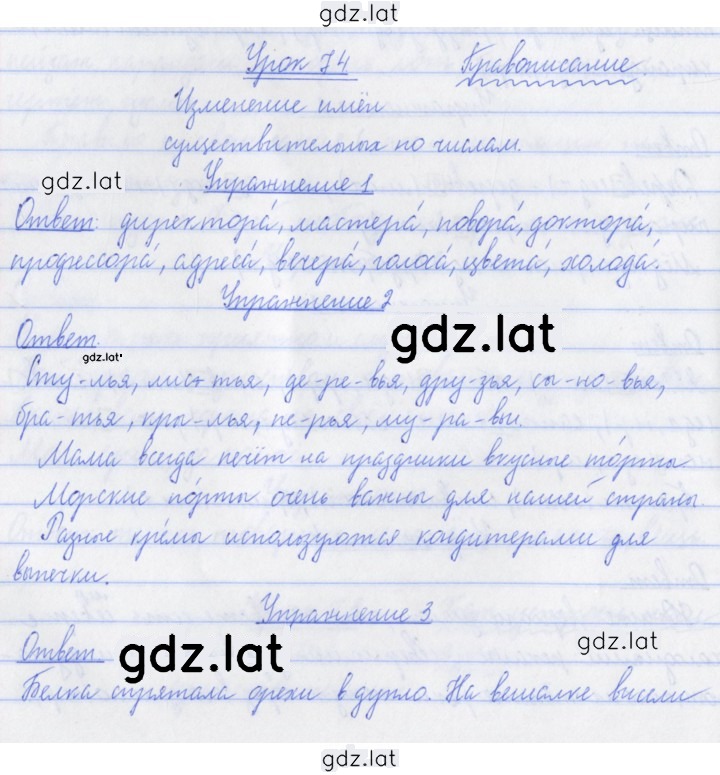 gdz.lat
Урок 74 Правописание
Изменение имён
существительных по числам.
gdz.lat
Упражнение 1
Ответ: директора́, мастера́, повора́, доктора́,
профессора́, адреса́, вечера́, голоса́, цвета́, холода́.
Упражнение 2
Ответ. gdz.lat
gdz.lat
Сту-лья, лис-тья, де-ре-вья, дру-зья, сы-но-вья,
бра-тья, кры-лья, пе-рья, му-ра-вьи.
Мама всегда печёт на праздники вкусные то́рты
Морские по́рты очень важны для нашей страны.
Разные кре́мы используются кондитерами для
выпечки.
Упражнение 3
Ответ gdz.lat gdz.lat
Белка спрятала орехи в дупло. На вешалке висели
gdz.lat